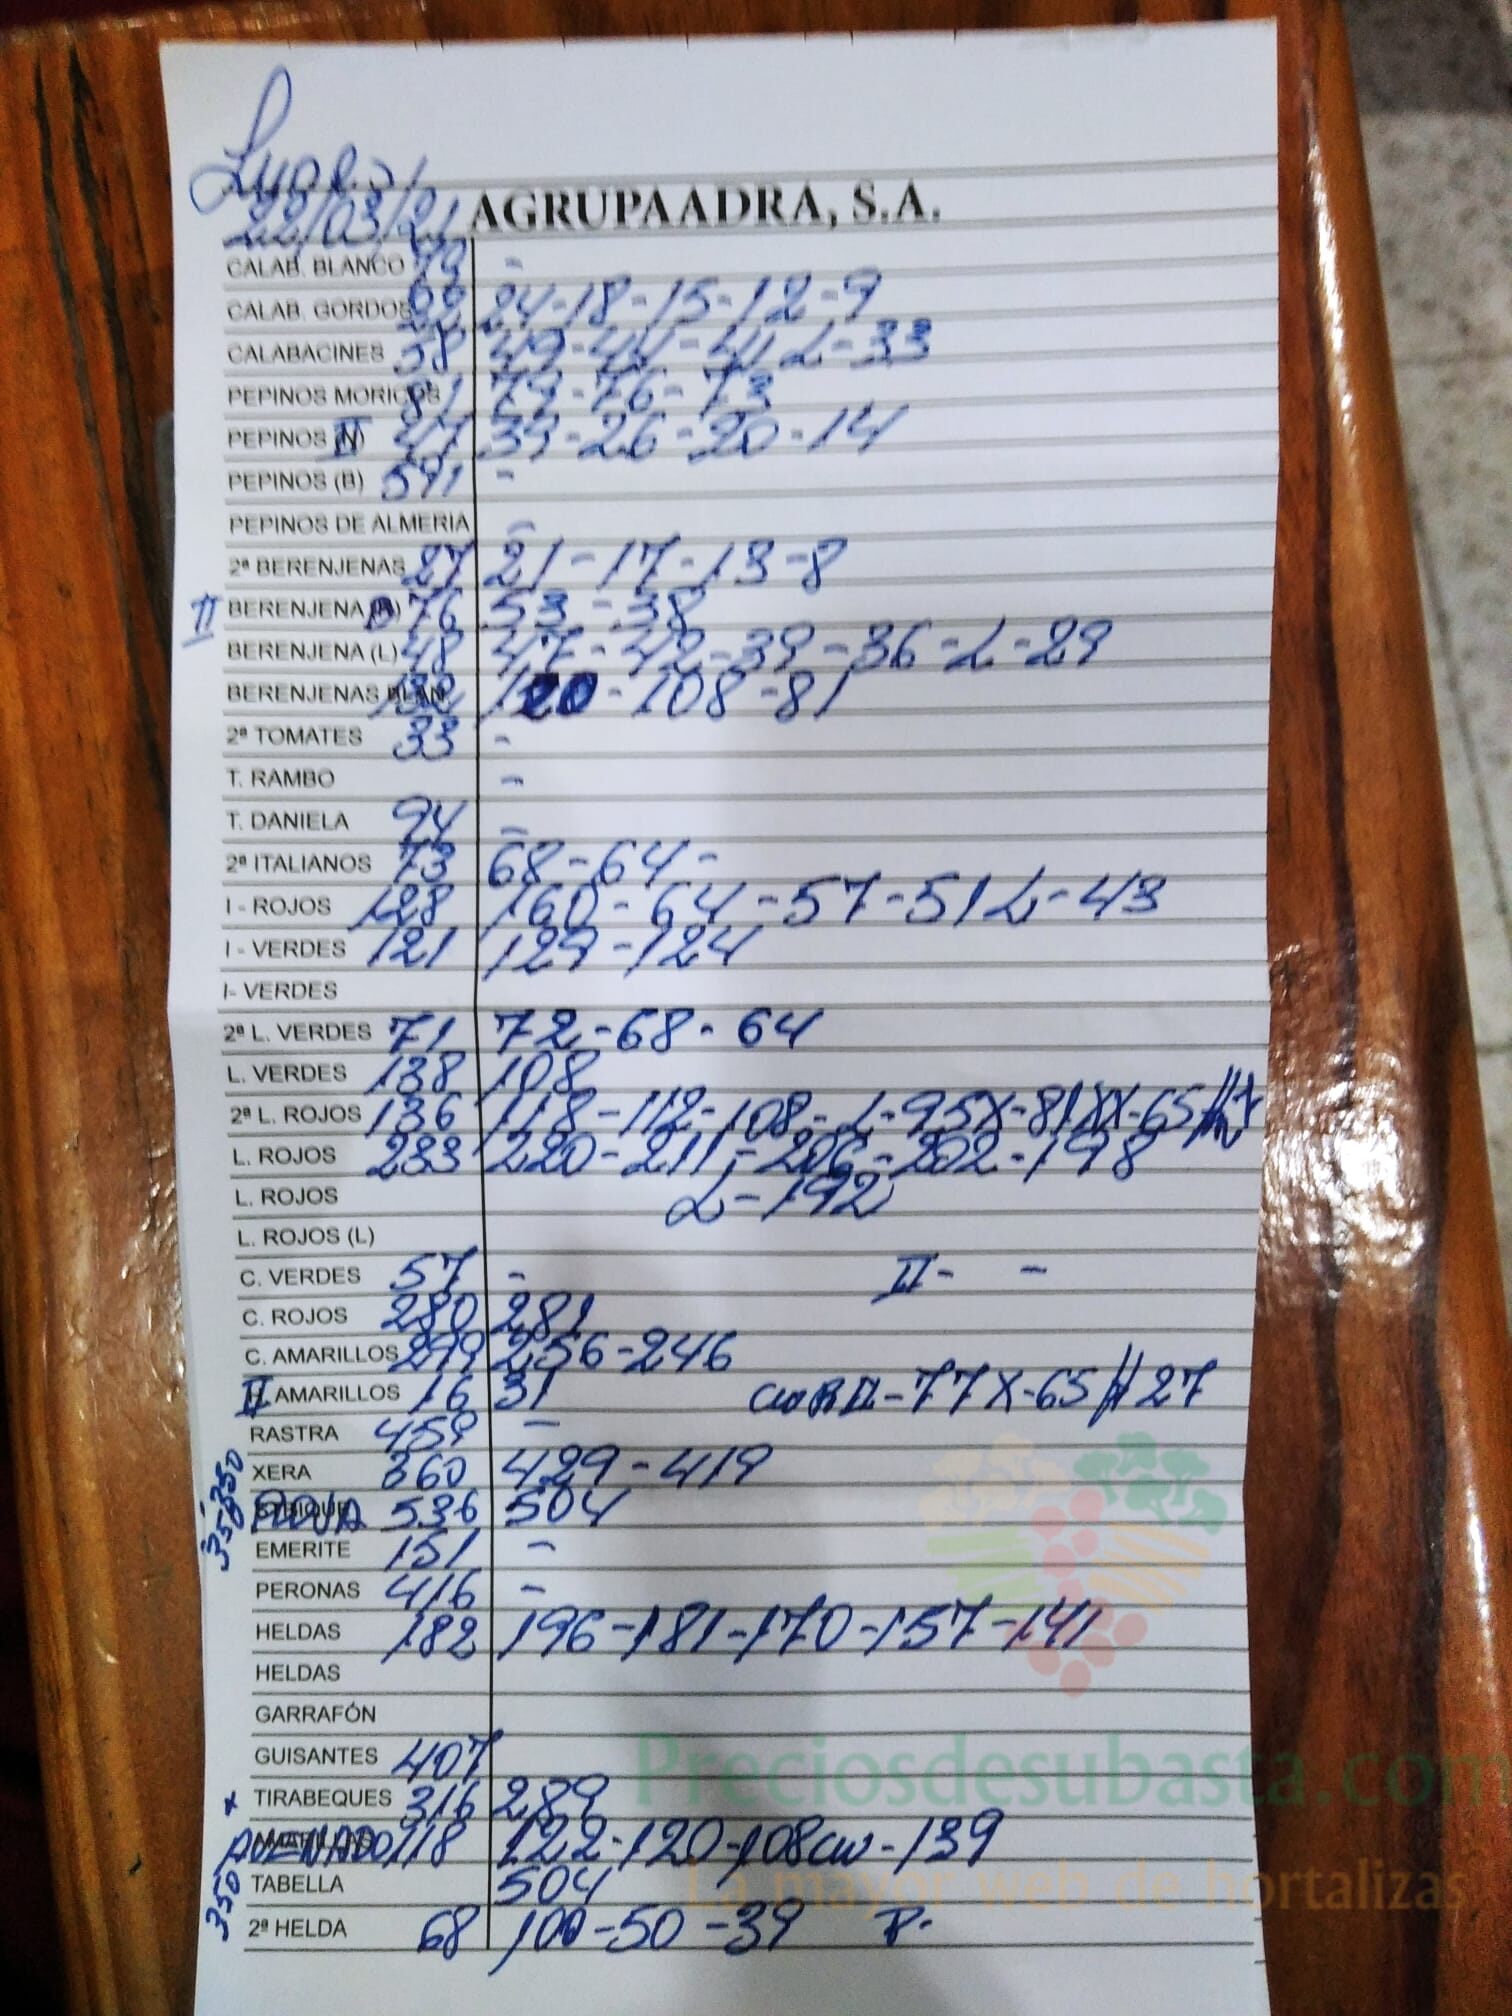 Lunes
22/03/21 AGRUPAADRA, S.A.
CALAB. BLANCO 79 -
CALAB. GORDOS 24-18-15-12-9
CALABACINES 58 49-44-41 L-33
PEPINOS MORICOS 81 79-76-73
PEPINOS II 47 39-26-20-14
PEPINOS (B) 591 -
PEPINOS DE ALMERIA -
2ª BERENJENAS 27 21-17-13-8
II BERENJENA 76 53-38
BERENJENA (L) 48 47-42-39-36-L-29
BERENJENAS BLAN 132 120-108-81
2ª TOMATES 33 -
T. RAMBO -
T. DANIELA 94 -
2ª ITALIANOS 73 68-64-
I - ROJOS 128 160-64-57-51 L-43
I - VERDES 121 129-124
I- VERDES
2ª L. VERDES 71 72-68-64
L. VERDES 138 108
2ª L. ROJOS 136 118-112-108-L-95X-81XX-65
L. ROJOS 233 220-211-206-202-198
L. ROJOS L-192
L. ROJOS (L)
C. VERDES 57 - II- -
C. ROJOS 280 281
C. AMARILLOS 299 256-246
II AMARILLOS 16 31 II-77X-65 27
RASTRA 459 -
XERA 360 429-419
536 504
EMERITE 151 -
PERONAS 416 -
HELDAS 182 196-181-170-157-141
HELDAS
GARRAFÓN
GUISANTES 407
x TIRABEQUES 316 289
118 122-120-108cw-139
350 TABELLA 504
2ª HELDA 68 100-50-39 P.
Preciosdesubasta.com
La mayor web de hortalizas